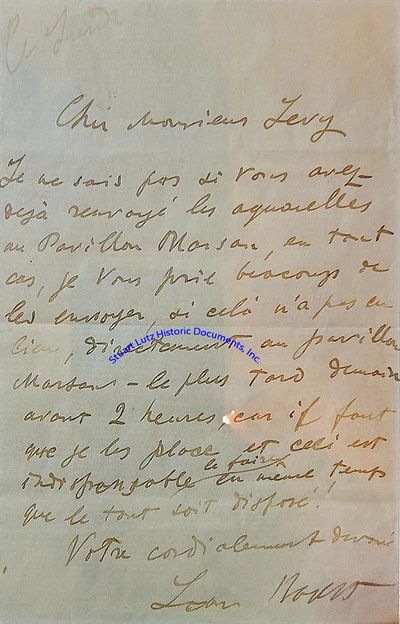 Ce Lundi
Cher Monsieur Levy
Je ne sais pas si vous avez
dejà renvoyé les aquarelles
au Pavillon Marsan, en tout
cas, je vous prie beaucoup de
les envoyer, si celà n'a pas eu
lieu, directement au pavillon
Stuart Lutz Historic Documents, Inc.
Marsan - le plus tard demain
avant 2 heures car il faut
que je les place et ceci est
indispensable le faire en même temps
que le tout soit disposé!
Votre cordialement devoué
Leon Bakst